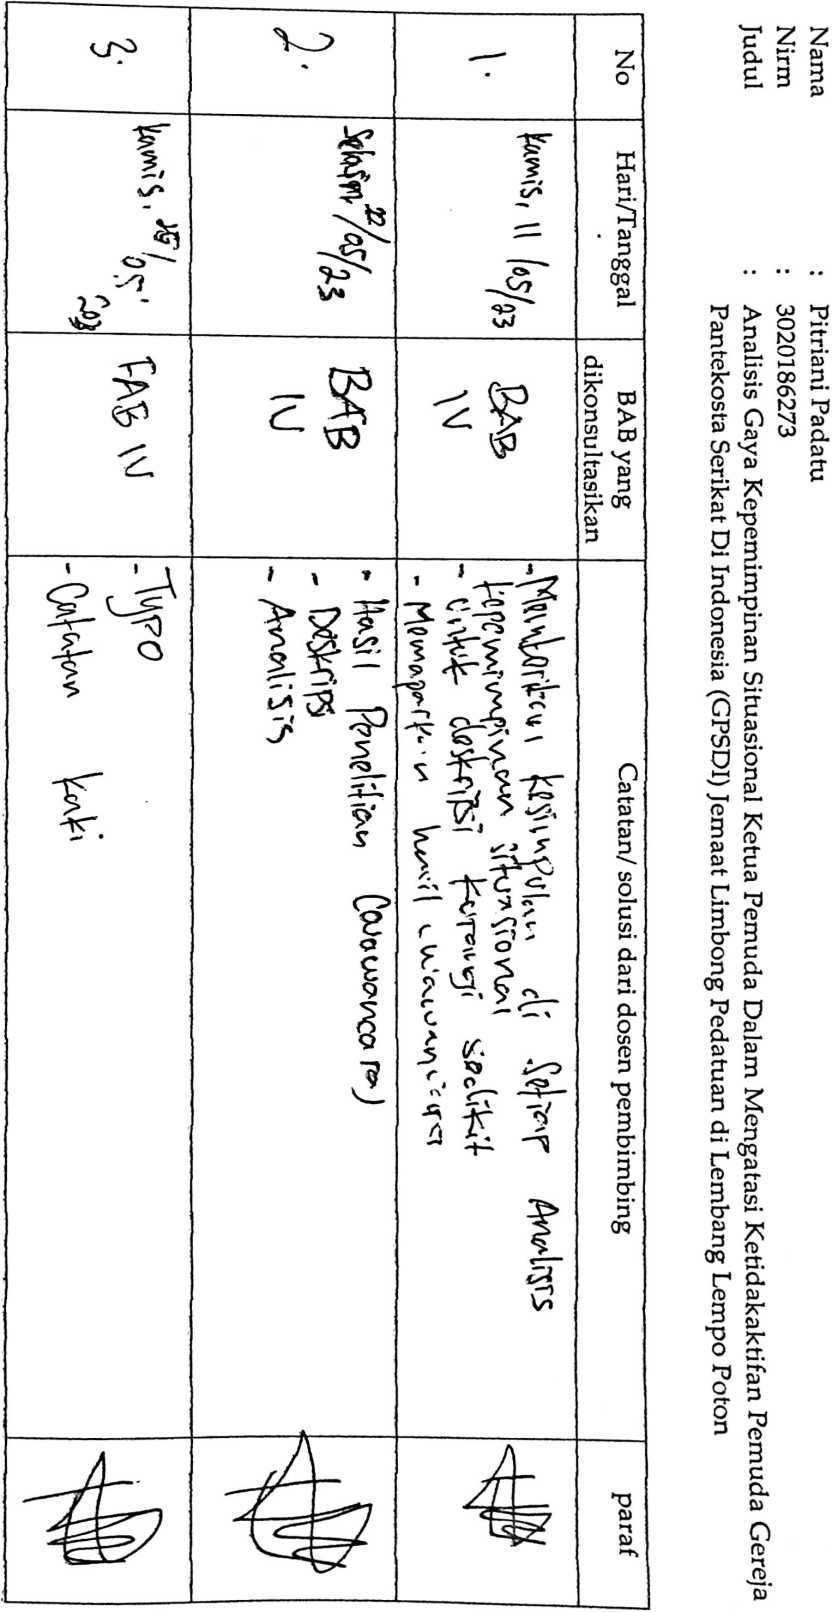 Nama : Pitriani Padatu
Nirm : 3020186273
Judul : Analisis Gaya Kepemimpinan Situasional Ketua Pemuda Dalam Mengatasi Ketidakaktifan Pemuda Gereja
Pantekosta Serikat Di Indonesia (GPSDI) Jemaat Limbong Pedatuan di Lembang Lempo Poton
No Hari/Tanggal BAB yang dikonsultasikan Catatan/ solusi dari dosen pembimbing paraf
1. Kamis, 11/05/23 BAB IV
- kesimpulan di setiap Analisis
kepemimpinan situasional
- untuk deskripsi kurangi sedikit
- Memaparkan hasil wawancara
2. 22/05/23 BAB IV
- Hasil Penelitian (wawancara)
- Deskripsi
- Analisis
3. Kamis, /05 BAB IV
- Typo
- Catatan kaki